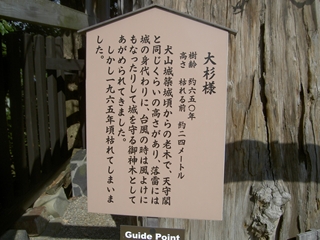 大杉様
樹齢 約六五〇年
高さ 枯れる前 約二四メートル
犬山城築城頃からの老木で、天守閣
と同じくらいの高さがあり、落雷には
城の身代わりに、台風の時は風よけに
もなったりして城を守る御神木として
あがめられてきました。
しかし一九六五年頃枯れてしまいま
した。
Guide Point